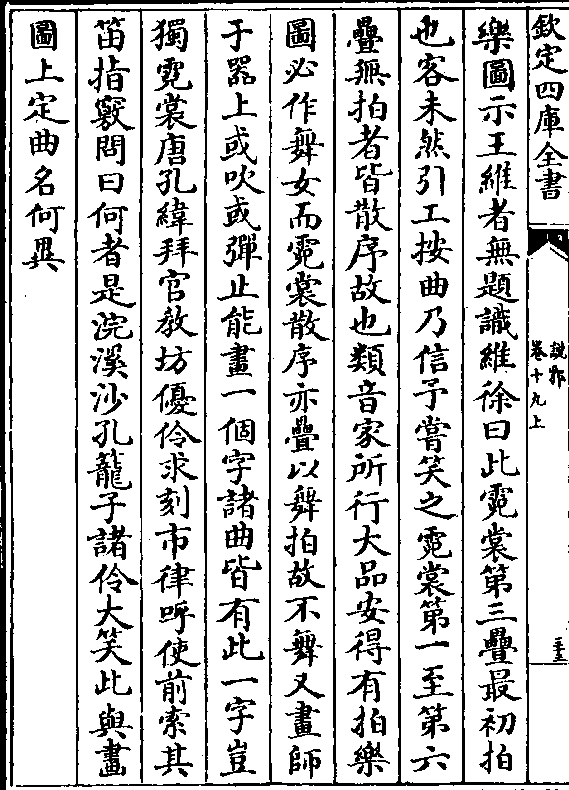 欽定四庫全書
說郛
卷十九上
樂圖示王維者無題識維徐曰此霓裳第三疊最初拍
也客未然引工按曲乃信予嘗笑之霓裳第一至第六
疊無拍者皆散序故也類音家所行大品安得有拍樂
圖必作舞女而霓裳散序亦疊以舞拍故不舞又畫師
于器上或吹或彈止能畫一個字諸曲皆有此一字豈
獨霓裳唐孔緯拜官教坊優伶求刻市律呼使前索其
笛指竅問曰何者是浣溪沙孔籠子諸伶大笑此與畫
圖上定曲名何異